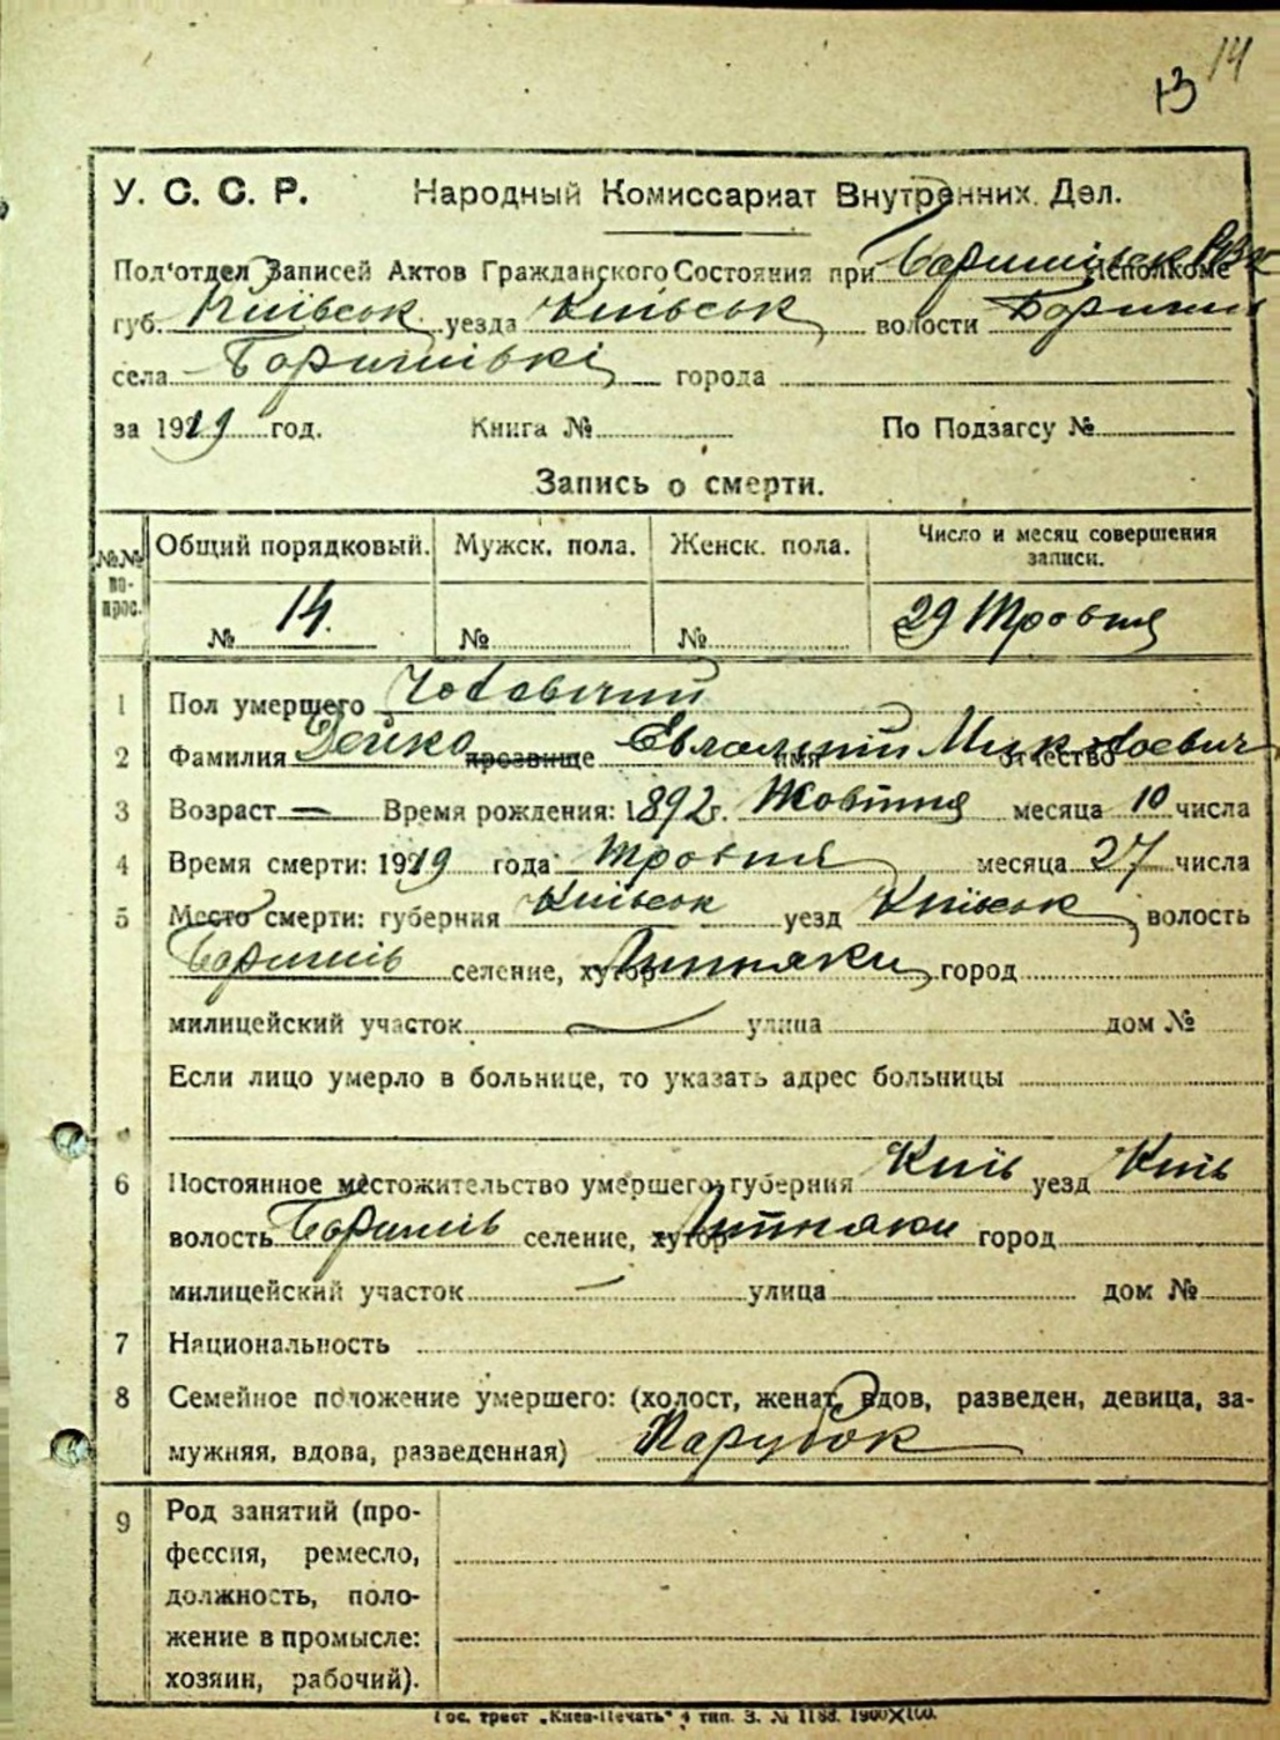 14
13
У. С. С. Р. Народный Комиссариат Внутренних Дел.
Под'отдел Записей Актов Гражданского Состояния при Баришівск РВК Исполкоме
губ. Київськ уезда Київськ волости Баришів
села Баришівкі города
за 1919 год. Книга № По Подзагсу №
Запись о смерти.
№№ вопрос. Общий порядковый. Мужск. пола. Женск. пола. Число и месяц совершения записи.
№ 14. № № 29 Тровня
1 Пол умершего Чоловичий
2 Фамилия Дейко прозвище Евлампий имя Миколоевич отчество
3 Возраст — Время рождения: 1892 г. Жовтня месяца 10 числа
4 Время смерти: 1919 года Тровня месяца 27 числа
5 Место смерти: губерния Київськ уезд Київськ волость
Баришів селение, хутор Липняки город
милицейский участок — улица дом №
Если лицо умерло в больнице, то указать адрес больницы
6 Постоянное местожительство умершего: губерния Київ уезд Київ
волость Баришів селение, хутор Липняки город
милицейский участок — улица дом №
7 Национальность
8 Семейное положение умершего: (холост, женат, вдов, разведен, девица, за-
мужняя, вдова, разведенная) Парубок
9 Род занятий (про-
фессия, ремесло,
должность, поло-
жение в промысле:
хозяин, рабочий).
Гос. трест „Киев-Печать" 4 тип. З. № 1188. 1900×100.